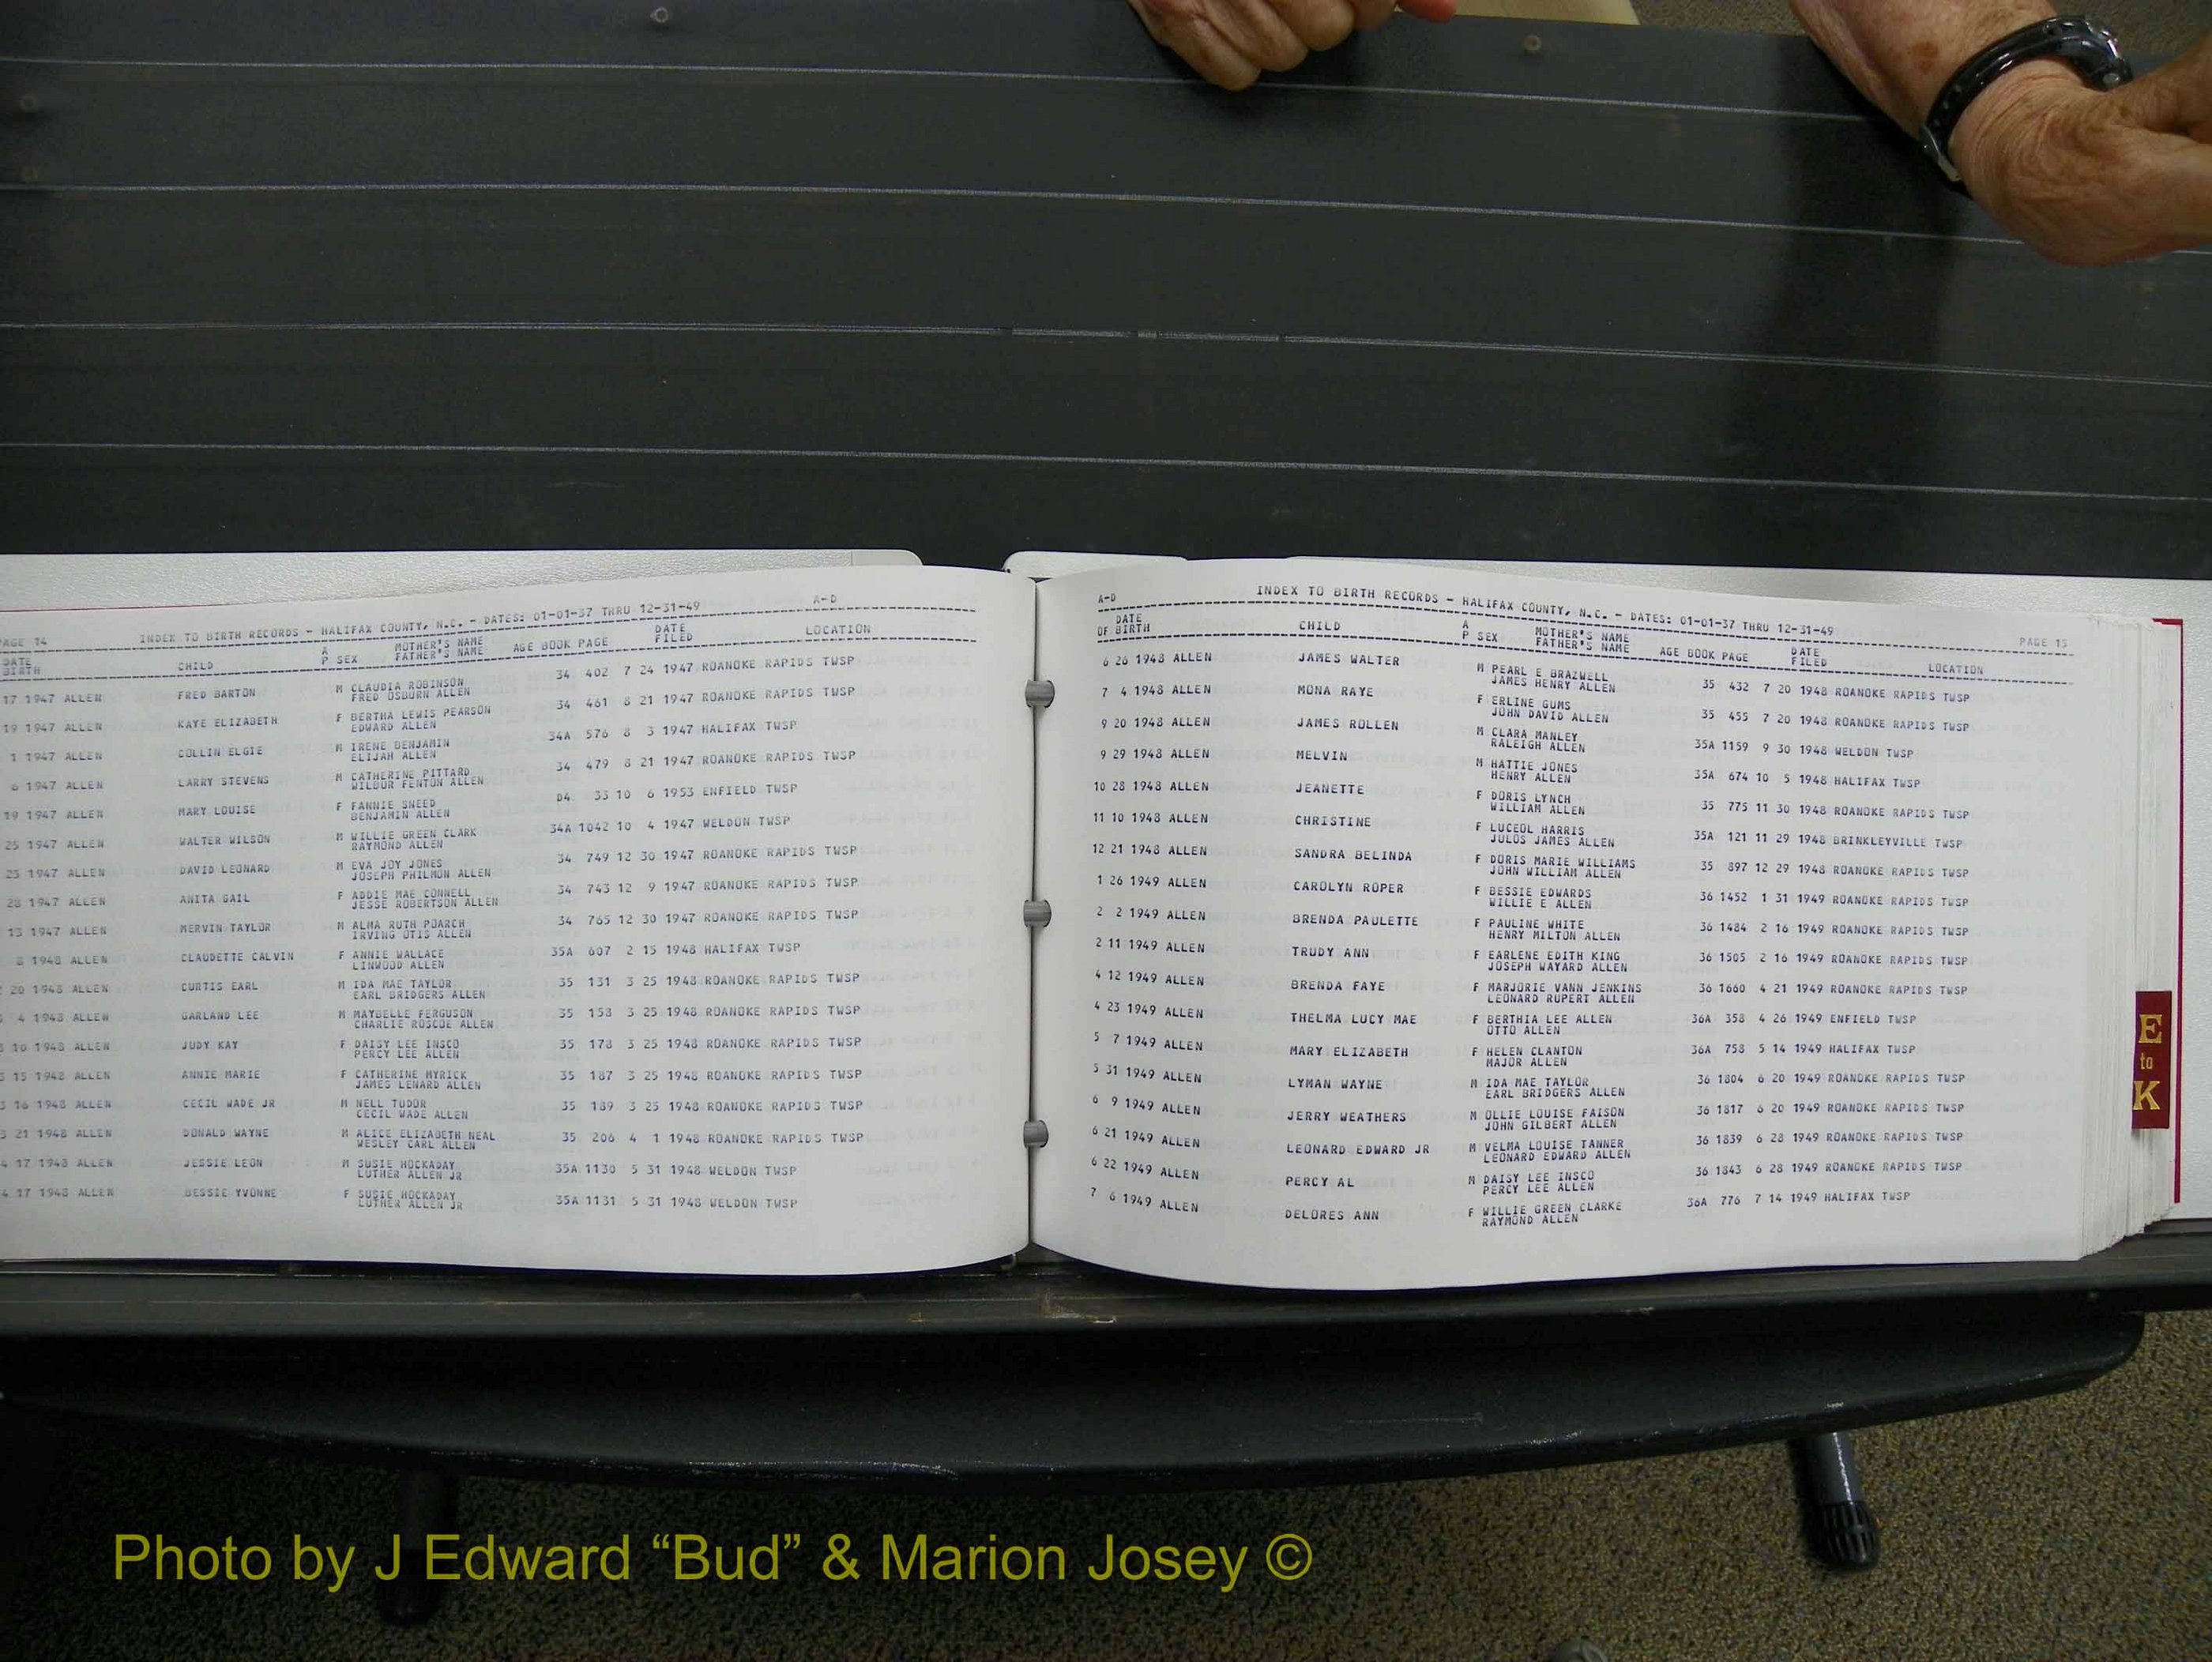 PAGE 14 INDEX TO BIRTH RECORDS - HALIFAX COUNTY, N.C. - DATES: 01-01-37 THRU 12-31-49 A-D
DATE BIRTH CHILD A P SEX MOTHER'S NAME FATHER'S NAME AGE BOOK PAGE DATE FILED LOCATION
17 1947 ALLEN FRED BARTON M CLAUDIA ROBINSON 34 402 7 24 1947 ROANOKE RAPIDS TWSP
FRED OSBURN ALLEN
19 1947 ALLEN KAYE ELIZABETH F BERTHA LEWIS PEARSON 34 461 8 21 1947 ROANOKE RAPIDS TWSP
EDWARD ALLEN
1 1947 ALLEN COLLIN ELGIE M IRENE BENJAMIN 34A 576 8 3 1947 HALIFAX TWSP
ELIJAH ALLEN
6 1947 ALLEN LARRY STEVENS M CATHERINE PITTARD 34 479 8 21 1947 ROANOKE RAPIDS TWSP
WILBUR FENTON ALLEN
19 1947 ALLEN MARY LOUISE F FANNIE SNEED D4 33 10 6 1953 ENFIELD TWSP
BENJAMIN ALLEN
25 1947 ALLEN WALTER WILSON M WILLIE GREEN CLARK 34A 1042 10 4 1947 WELDON TWSP
RAYMOND ALLEN
25 1947 ALLEN DAVID LEONARD M EVA JOY JONES 34 749 12 30 1947 ROANOKE RAPIDS TWSP
JOSEPH PHILMON ALLEN
28 1947 ALLEN ANITA GAIL F ADDIE MAE CONNELL 34 743 12 9 1947 ROANOKE RAPIDS TWSP
JESSE ROBERTSON ALLEN
13 1947 ALLEN MERVIN TAYLOR M ALMA RUTH POARCH 34 765 12 30 1947 ROANOKE RAPIDS TWSP
IRVING OTIS ALLEN
8 1948 ALLEN CLAUDETTE CALVIN F ANNIE WALLACE 35A 607 2 15 1948 HALIFAX TWSP
LINWOOD ALLEN
20 1948 ALLEN CURTIS EARL M IDA MAE TAYLOR 35 131 3 25 1948 ROANOKE RAPIDS TWSP
EARL BRIDGERS ALLEN
4 1948 ALLEN GARLAND LEE M MAYBELLE FERGUSON 35 158 3 25 1948 ROANOKE RAPIDS TWSP
CHARLIE ROSCOE ALLEN
10 1948 ALLEN JUDY KAY F DAISY LEE INSCO 35 178 3 25 1948 ROANOKE RAPIDS TWSP
PERCY LEE ALLEN
3 15 1948 ALLEN ANNIE MARIE F CATHERINE MYRICK 35 187 3 25 1948 ROANOKE RAPIDS TWSP
JAMES LENARD ALLEN
3 16 1948 ALLEN CECIL WADE JR M NELL TUDOR 35 189 3 25 1948 ROANOKE RAPIDS TWSP
CECIL WADE ALLEN
3 21 1948 ALLEN DONALD WAYNE M ALICE ELIZABETH NEAL 35 206 4 1 1948 ROANOKE RAPIDS TWSP
WESLEY CARL ALLEN
4 17 1948 ALLEN JESSIE LEON M SUSIE HOCKADAY 35A 1130 5 31 1948 WELDON TWSP
LUTHER ALLEN JR
4 17 1948 ALLEN BESSIE YVONNE F SUSIE HOCKADAY 35A 1131 5 31 1948 WELDON TWSP
LUTHER ALLEN JR
A-D INDEX TO BIRTH RECORDS - HALIFAX COUNTY, N.C. - DATES: 01-01-37 THRU 12-31-49 PAGE 15
DATE OF BIRTH CHILD A P SEX MOTHER'S NAME FATHER'S NAME AGE BOOK PAGE DATE FILED LOCATION
6 26 1948 ALLEN JAMES WALTER M PEARL E BRAZWELL 35 432 7 20 1948 ROANOKE RAPIDS TWSP
JAMES HENRY ALLEN
7 4 1948 ALLEN MONA RAYE F ERLINE GUMS 35 455 7 20 1948 ROANOKE RAPIDS TWSP
JOHN DAVID ALLEN
9 20 1948 ALLEN JAMES ROLLEN M CLARA MANLEY 35A 1159 9 30 1948 WELDON TWSP
RALEIGH ALLEN
9 29 1948 ALLEN MELVIN M HATTIE JONES 35A 674 10 5 1948 HALIFAX TWSP
HENRY ALLEN
10 28 1948 ALLEN JEANETTE F DORIS LYNCH 35 775 11 30 1948 ROANOKE RAPIDS TWSP
WILLIAM ALLEN
11 10 1948 ALLEN CHRISTINE F LUCEOL HARRIS 35A 121 11 29 1948 BRINKLEYVILLE TWSP
JULOS JAMES ALLEN
12 21 1948 ALLEN SANDRA BELINDA F DORIS MARIE WILLIAMS 35 897 12 29 1948 ROANOKE RAPIDS TWSP
JOHN WILLIAM ALLEN
1 26 1949 ALLEN CAROLYN ROPER F BESSIE EDWARDS 36 1452 1 31 1949 ROANOKE RAPIDS TWSP
WILLIE E ALLEN
2 2 1949 ALLEN BRENDA PAULETTE F PAULINE WHITE 36 1484 2 16 1949 ROANOKE RAPIDS TWSP
HENRY MILTON ALLEN
2 11 1949 ALLEN TRUDY ANN F EARLENE EDITH KING 36 1505 2 16 1949 ROANOKE RAPIDS TWSP
JOSEPH WAYARD ALLEN
4 12 1949 ALLEN BRENDA FAYE F MARJORIE VANN JENKINS 36 1660 4 21 1949 ROANOKE RAPIDS TWSP
LEONARD RUPERT ALLEN
4 23 1949 ALLEN THELMA LUCY MAE F BERTHIA LEE ALLEN 36A 358 4 26 1949 ENFIELD TWSP
OTTO ALLEN
5 7 1949 ALLEN MARY ELIZABETH F HELEN CLANTON 36A 758 5 14 1949 HALIFAX TWSP
MAJOR ALLEN
5 31 1949 ALLEN LYMAN WAYNE M IDA MAE TAYLOR 36 1804 6 20 1949 ROANOKE RAPIDS TWSP
EARL BRIDGERS ALLEN
6 9 1949 ALLEN JERRY WEATHERS M OLLIE LOUISE FAISON 36 1817 6 20 1949 ROANOKE RAPIDS TWSP
JOHN GILBERT ALLEN
6 21 1949 ALLEN LEONARD EDWARD JR M VELMA LOUISE TANNER 36 1839 6 28 1949 ROANOKE RAPIDS TWSP
LEONARD EDWARD ALLEN
6 22 1949 ALLEN PERCY AL M DAISY LEE INSCO 36 1843 6 28 1949 ROANOKE RAPIDS TWSP
PERCY LEE ALLEN
7 6 1949 ALLEN DELORES ANN F WILLIE GREEN CLARKE 36A 776 7 14 1949 HALIFAX TWSP
RAYMOND ALLEN
E
to
K
Photo by J Edward “Bud” & Marion Josey ©